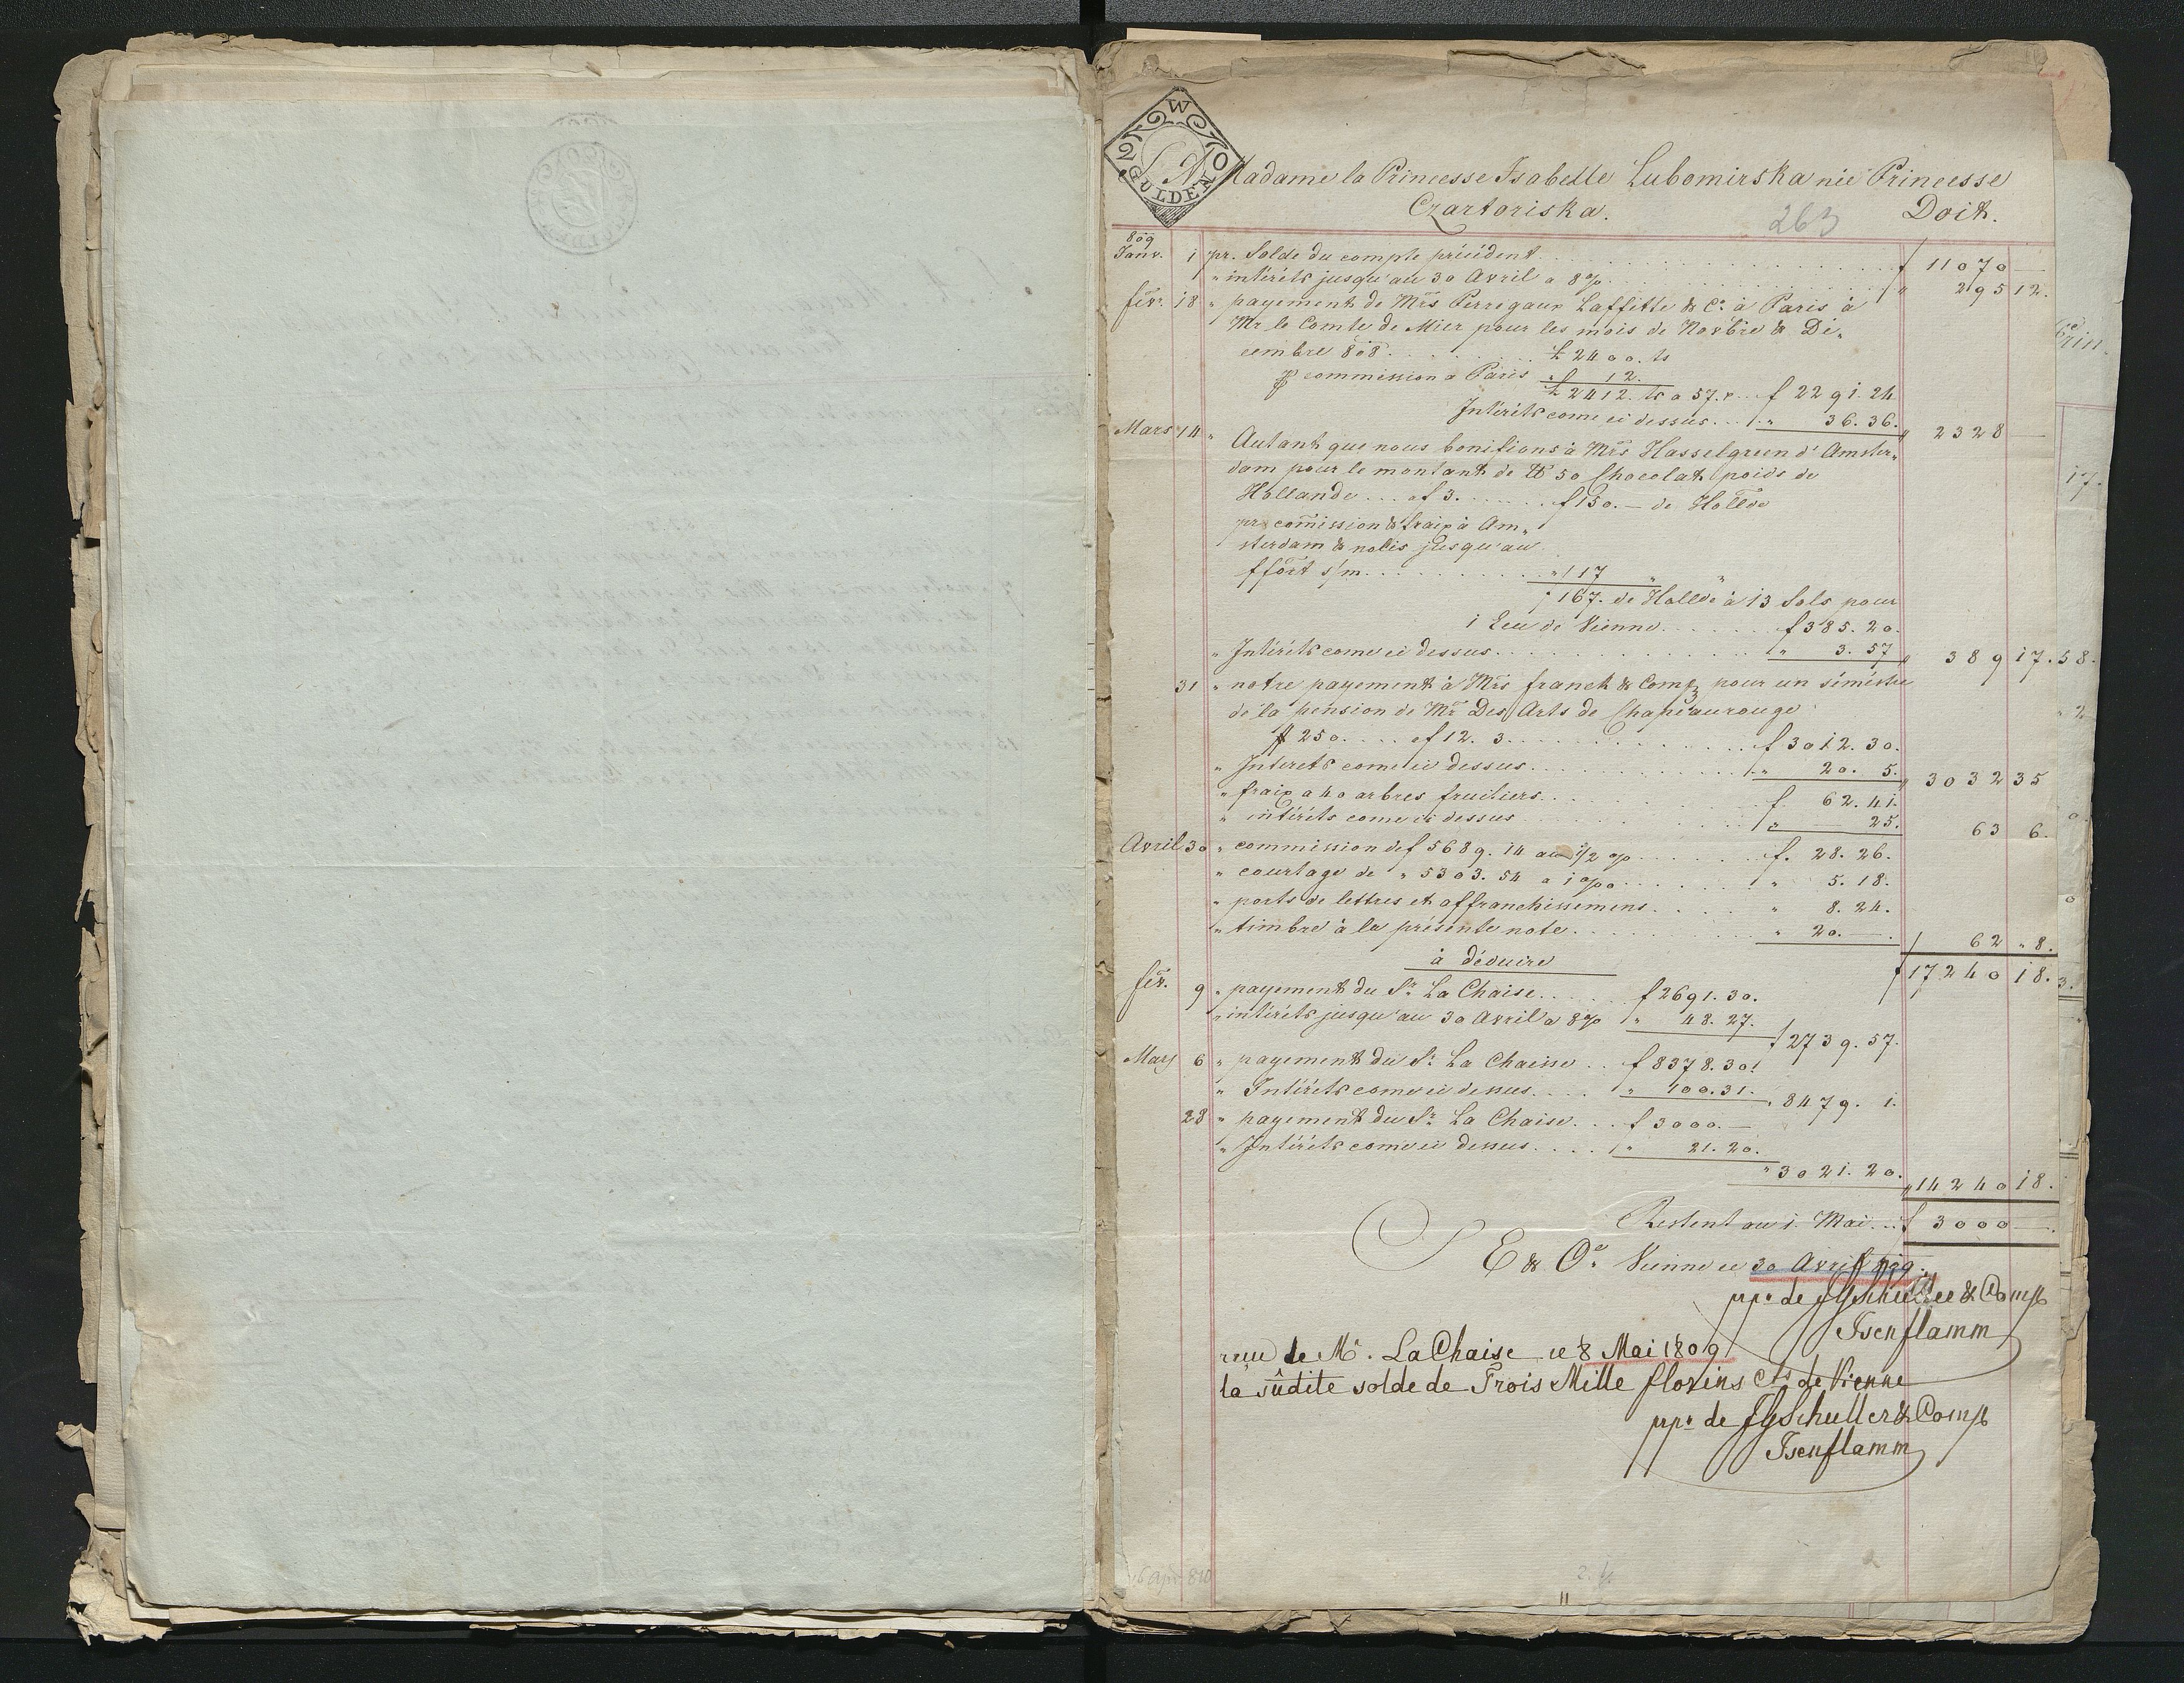 W
20
GULDEN
Madame la Princesse Isabelle Lubomirska née Princesse
Czartoriska. 263 Doit.
809
Janv. 1 pr. Solde du compte précédent f 11070 —
" intérêts jusqu'au 30 Avril a 8% " 295 12.
févr. 18 " payement de Mrs Perregaux Laffitte & Co. à Paris à
Mr le Comte de Mier pour les mois de Novbre & Dé„
cembre 808 £ 2400. ts
commission a Paris " 12.
£ 2412. ts a 57. f 2291. 24
Intérêts come ci dessus " 36. 36. " 2328 —
Mars 14 " Autant que nous bonifions à Mrs Hasselgreen d'Amster„
dam pour le montant de ℔ 50 Chocolat, poids de
Hollande a f 3. f 150. — de Hollde
pr commission & fraix à Am„
sterdam & nolis jusqu'au
ffort s/m " 17 " "
f 167. de Hollde à 13 Sols pour
1 Ecu de Vienne f 385. 20.
" Intérêts come ci dessus " 3. 57 " 389 17.
31 " notre payement à Mrs franck & Comp pour un siméstre
de la pension de Mr Des Arts de Chapeaurouge
250 a f 12. 3. f 3012. 30.
" Interets come ci dessus " 20. 5. " 3032 35
" fraix a 40 arbres fruitiers f 62. 41.
" intérêts come ci dessus " — 25. 63 6.
Avril 30 " commission de f 5689. 14 a 1/2 % f. 28. 26.
" courtage de " 5303. 54 a 1 ‰ " 5. 18.
" ports de lettres et affranchissemens " 8. 24.
" timbre à la présente note " 20. —. 62 " 8.
à déduire f 17240 18.
fév. 9 " payement du Sr. La Chaise f 2691. 30.
" intérêts jusqu'au 30 Avril a 8% " 48. 27.
f 2739. 57.
Mars 6 " payement du Sr. La Chaise f 8378. 30.
" Intérêts come ci dessus " 100. 31. " 8479. 1.
28 " payement du Sr. La Chaise f 3000. —
" Intérêts come ci dessus " 21. 20.
" 3021. 20. " 14240 18.
Restent au 1. Mai f 3000 —.
S E & Oe. Vienne ce 30 Avril 809.
ppa. de JG Schuller & Comp
Isenflamm
reçu de Mr. La Chaise ce 8 Mai 1809
la sûdite solde de Trois Mille florins Cts de Vienne
ppa. de JG Schuller & Comp
Isenflamm